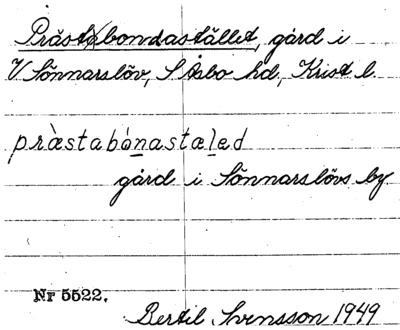 Prästabondastället, gård i
V Sönnarslöv, S Åsbo hd, Krist l.
præ̀stabónastaled
gård i Sönnarslövs by
Nr 5522.
Bertil Svensson 1949